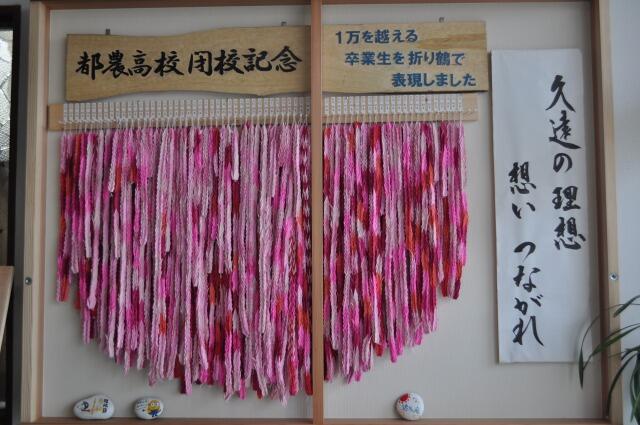 都農高校閉校記念
1万を越える
卒業生を折り鶴で
表現しました
久遠の理想
想い つながれ